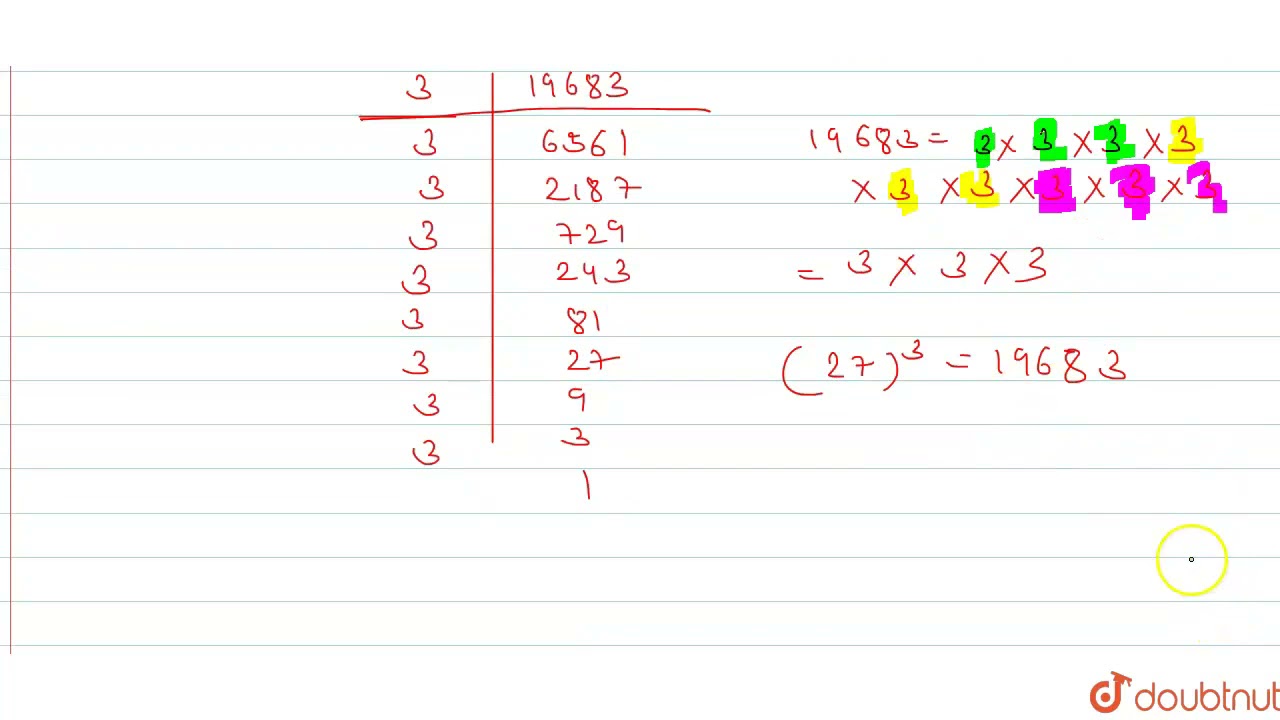 3 19683
3 6561
3 2187
3 729
3 243
3 81
3 27
3 9
3 3
1
19683 = 3 × 3 × 3 × 3
× 3 × 3 × 3 × 3 × 3
= 3 × 3 × 3
(27)³ = 19683
doubtnut